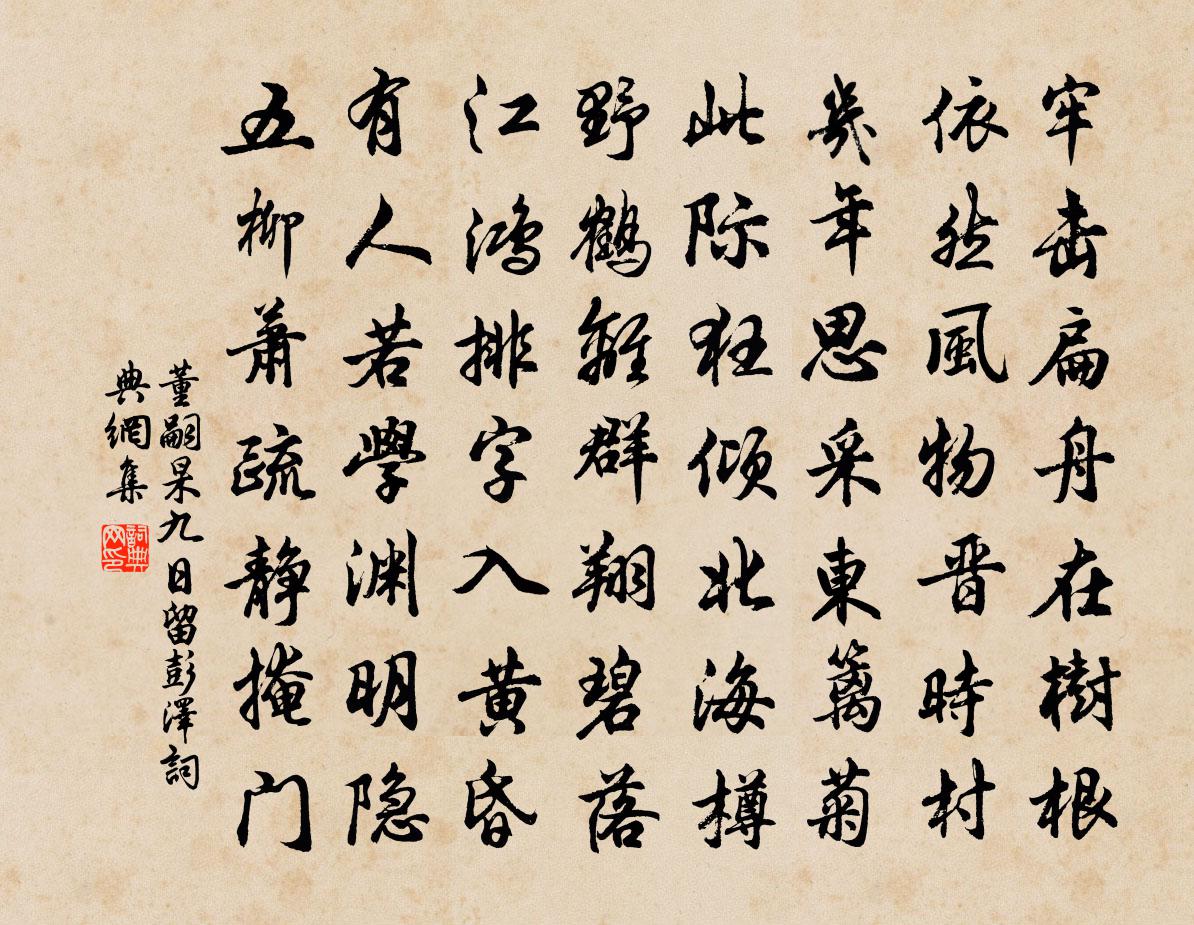 牢击扁舟在樹根
依然風物晋時村
幾年思采東篱菊
此际狂倾北海樽
野鶴離群翔碧落
江鸿排字入黄昏
有人若學渊明隐
五柳蕭疏静掩门
董嗣杲九日留彭澤詞
典網集
詞典
网印